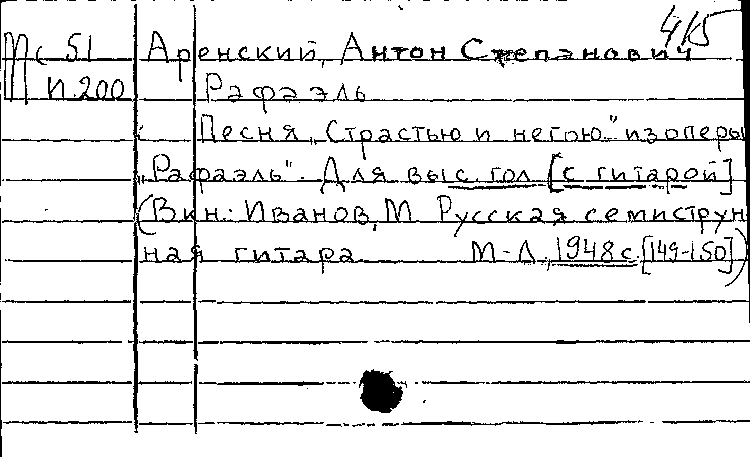 4/5
Мс 51 Аренский, Антон Степанович
И.200 Рафаэль
Песня "Страстью и негою" из оперы
"Рафаэль". Для выс. гол [с гитарой]
(В кн.: Иванов, М Русская семиструн
ная гитара М-Л, 1948 с. [149-150])